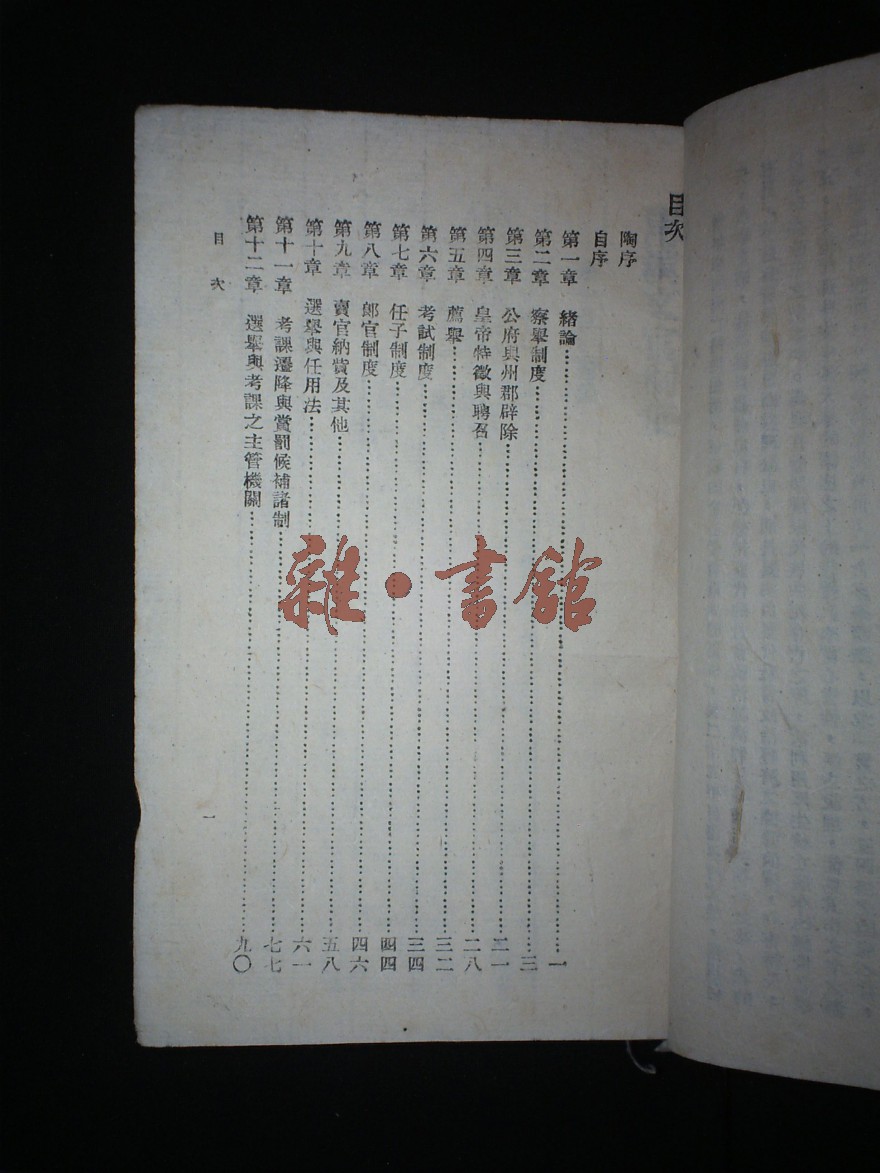 目次
陶序
自序
第一章 緒論……一
第二章 察舉制度……三
第三章 公府與州郡辟除……二一
第四章 皇帝特徵與聘召……二八
第五章 薦舉……三二
第六章 考試制度……三四
第七章 任子制度……四四
第八章 郎官制度……四六
第九章 賣官納貲及其他……五八
第十章 選舉與任用法……六一
第十一章 考課遷降與賞罰候補諸制……七七
第十二章 選舉與考課之主管機關……九〇
目次
一
雜·書館